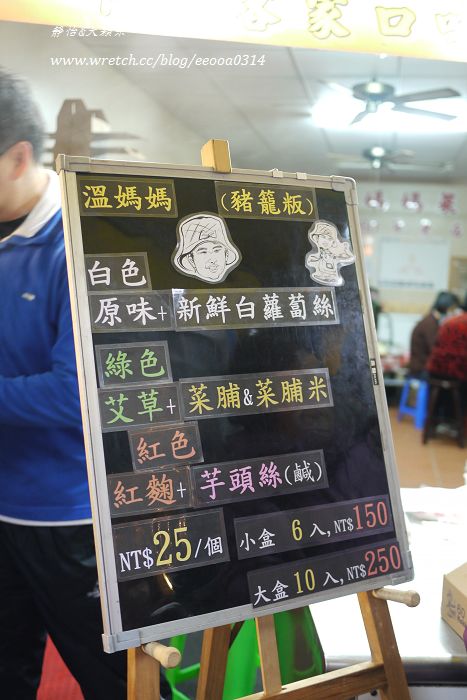 靜怡&大顆呆
www.wretch.cc/blog/eeooa0314
客家口味
溫媽媽 (豬籠粄)
白色
原味+新鮮白蘿蔔絲
綠色
艾草+菜脯&菜脯米
紅色
紅麴+芋頭絲(鹹)
NT$25/個
小盒 6 入,NT$150
大盒 10 入,NT$250